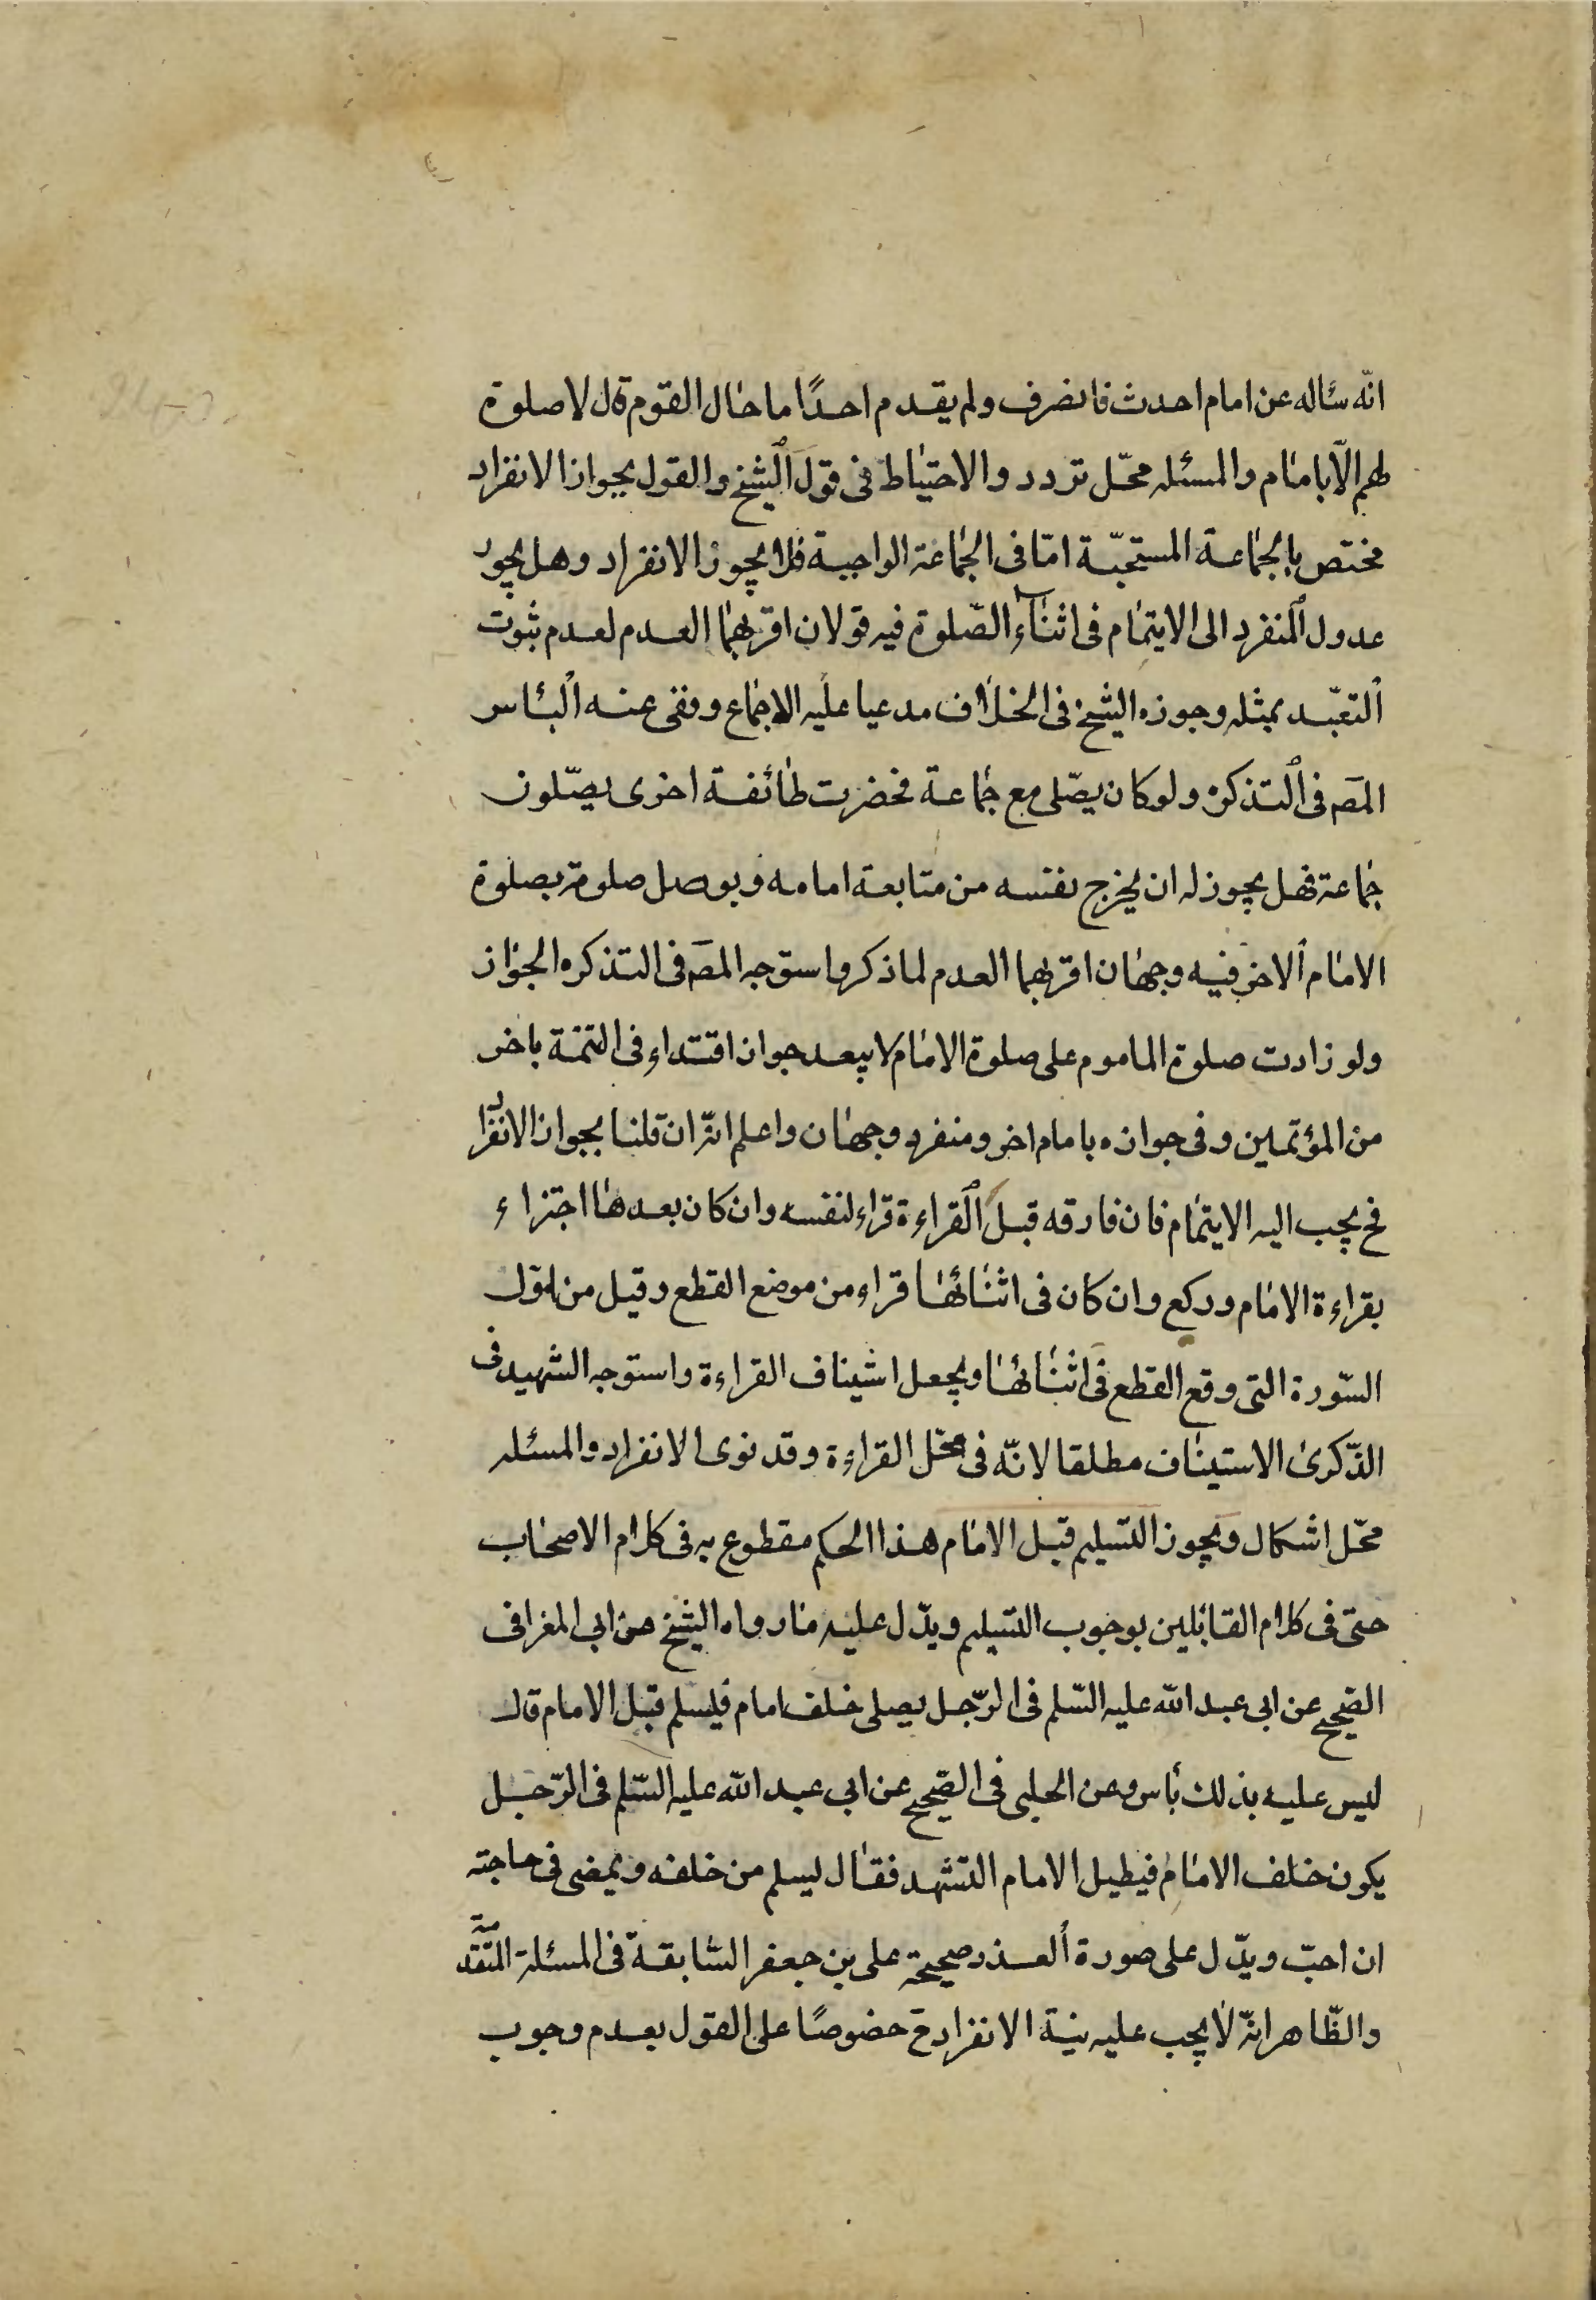 انّه سئاله عن امام احدث فانصرف ولم يقدم احدًا ما حال القوم قال لا صلوة
لهم الّا بامام والمسئله محّل تردد والاحتياط فى قول الشيخ والقول بجواز الانفراد
مختص بالجماعة المستحبّة امّا فى الجماعة الواجبة فلا يجوز الانفراد وهل يجوز
عدول المنفرد الى الايتمام فى اثناء الصّلوة فيه قولان اقربهما العدم لعدم ثبوت
التعبّد بمثله وجوزه الشيخ فى الخلاف مدعيا عليه الاجماع ونفى عنه البئاس
المصَ فى التذكره ولو كان يصّلى مع جماعة فحضرت طائفة اخرى يصّلون
جماعة فهل يجوز له ان يخرج نفسه من متابعة امامه ويوصل صلوته بصلوة
الامام الاخر فيه وجهان اقربهما العدم لما ذكر واستوجه المصَ فى التذكره الجواز
ولو زادت صلوة الماموم على صلوة الامام لا يبعد جواز اقتداء فى التتمة باخر
من المؤتمين وفى جوازه بامام اخر ومنفرد وجهان واعلم انّه ان قلنا بجواز الانفراد
فح يجب اليه الايتمام فان فارقه قبل القراءة قراء لنفسه وان كان بعدها اجتزاء
بقراءة الامام وركع وان كان فى اثنائها قراء من موضع القطع وقيل من اول
السّورة التى وقع القطع فى اثنائها ويجعل اشيناف القراءة واستوجه الشهيد فى
الذّكرى الاستيناف مطلقا لانّه فى محّل القراءة وقد نوى الانفراد والمسئله
محّل اشكال ويجوز التسليم قبل الامام هذا الحكم مقطوع به فى كلام الاصحاب
حتى فى كلام القائلين بوجوب التسليم ويدّل عليه مارواه الشيخ عن ابى المغرا فى
الصّحيح عن ابى عبد الله عليه السّلم فى الرّجل يصلى خلف امام فيسلم قبل الامام قال
ليس عليه بذلك بأس وعن الحلبى فى الصّحيح عن ابى عبد الله عليه السّلم فى الرّجل
يكون خلف الامام فيطيل الامام التشهد فقال ليسلم من خلفه ويمضى فى حاجته
ان احبّ ويدّل على صورة العذر صحيحة على بن جعفر السّابقة فى المسئلة المتقدّمة
والظّاهر انّه لا يجب عليه نية الانفراد ح خصوصًا على القول بعدم وجوب